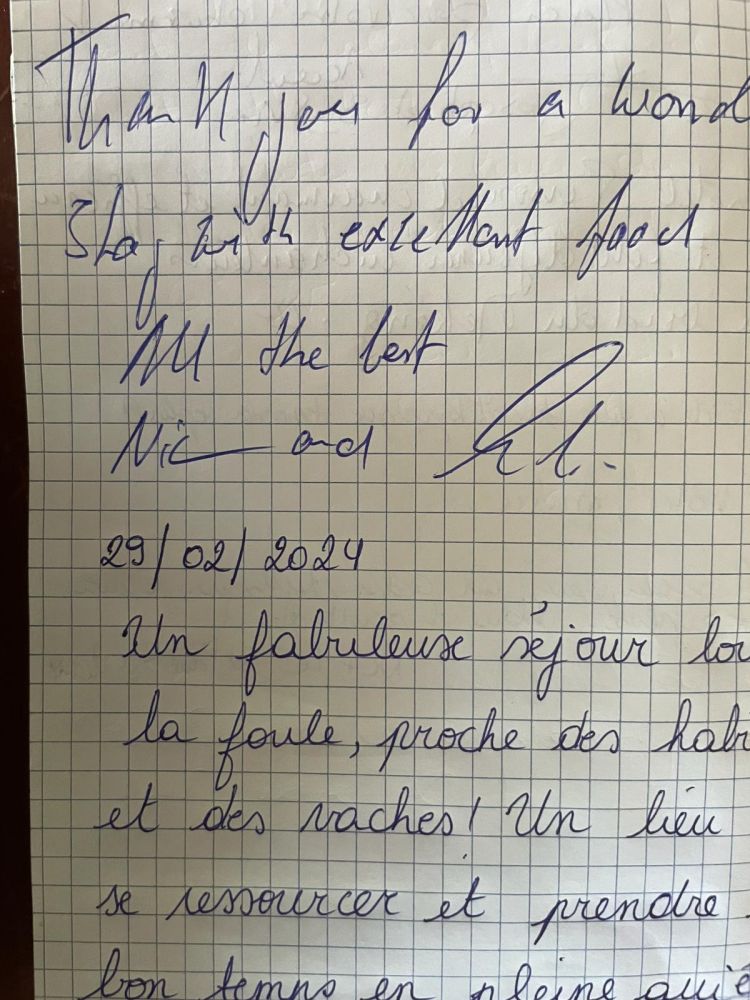 Thank you for a wond
Stay with excellent food
All the best
Nic and
29/02/2024
Un fabuleuse séjour loi
la foule, proche des hab
et des vaches! Un lieu
se ressourcer et prendre
bon temps en pleine quié